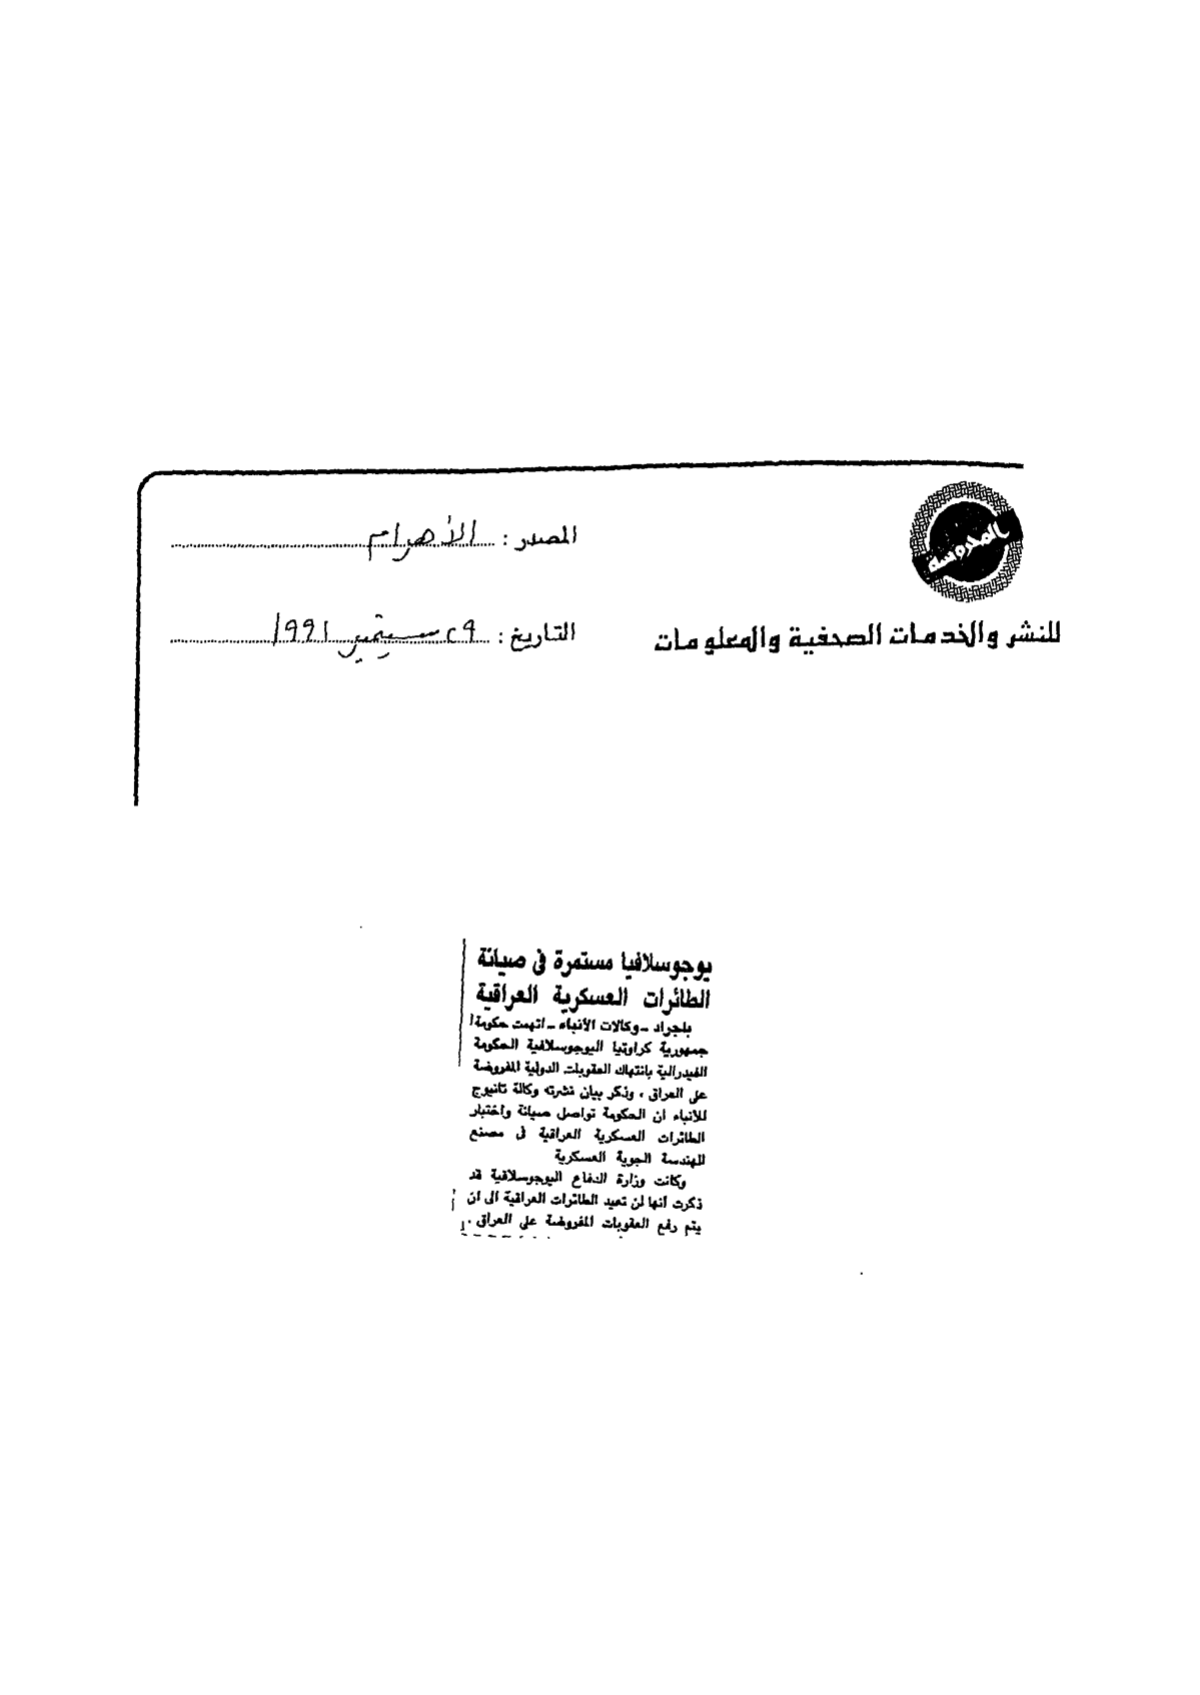 المحروسة
للنشر والخدمات الصحفية والمعلومات
المصدر : الأهرام
التاريخ : ٢٩ سبتمبر ١٩٩١
يوجوسلافيا مستمرة فى صيانة
الطائرات العسكرية العراقية
بلجراد - وكالات الأنباء - اتهمت حكومة
جمهورية كراوتيا اليوجوسلافية الحكومة
الفيدرالية بانتهاك العقوبات الدولية المفروضة
على العراق ، وذكر بيان نشرته وكالة تانيوج
للأنباء ان الحكومة تواصل صيانة واختبار
الطائرات العسكرية العراقية فى مصنع
للهندسة الجوية العسكرية
وكانت وزارة الدفاع اليوجوسلافية قد
ذكرت أنها لن تعيد الطائرات العراقية الى ان
يتم رفع العقوبات المفروضة على العراق .